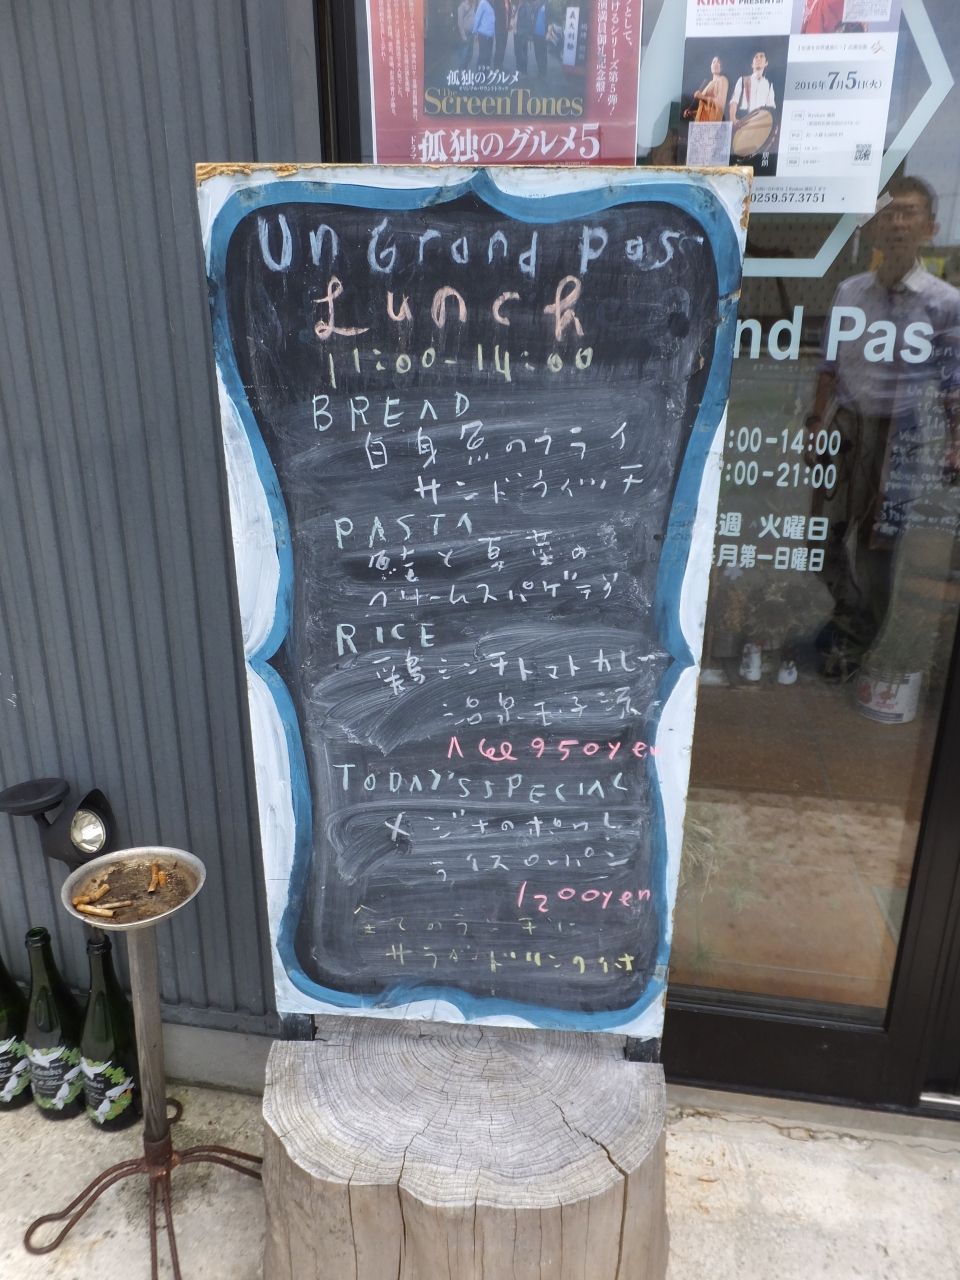 孤独のグルメ
The
ScreenTones
孤独のグルメ5
ドラマ
KIRIN PRESENTS!
2016年7月5日(火)
0259.57.3751
Un Grand Pas
Lunch
11:00-14:00
BREAD
白身魚のフライ
サンドウィッチ
PASTA
と夏菜の
クリームスパゲティ
RICE
鶏ミンチトマトカレー
温泉玉子添
All 950yen
TODAY'S SPECIAL
メジナのポワレ
ライス or パン
1200yen
全てのランチに
サラダドリンク付
nd Pas
:00-14:00
:00-21:00
週 火曜日
月第一日曜日